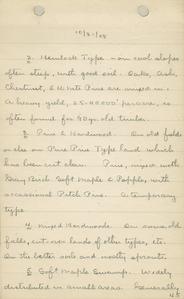 10/31/08
2. Hemlock Type on cool slopes
often steep, with good soil. Oaks, Ash,
Chestnut, & White Pine are mixed in.
A heavy yield, 25-40000' per acre, is
often found for 90 yr. old timber.
3. Pine & Hardwood. On old fields
or else on Pure Pine Type land which
has been cut clean. Pine, mixed with
Gray Birch, Soft Maple & Popple, with
occasional Pitch Pine. A temporary
type.
4. Mixed Hardwoods. On some old
fields, cut-over lands of other types, etc.
On the better soils and mostly sprouts.
5. Soft Maple Swamp. Widely
distributed in small areas. Generally